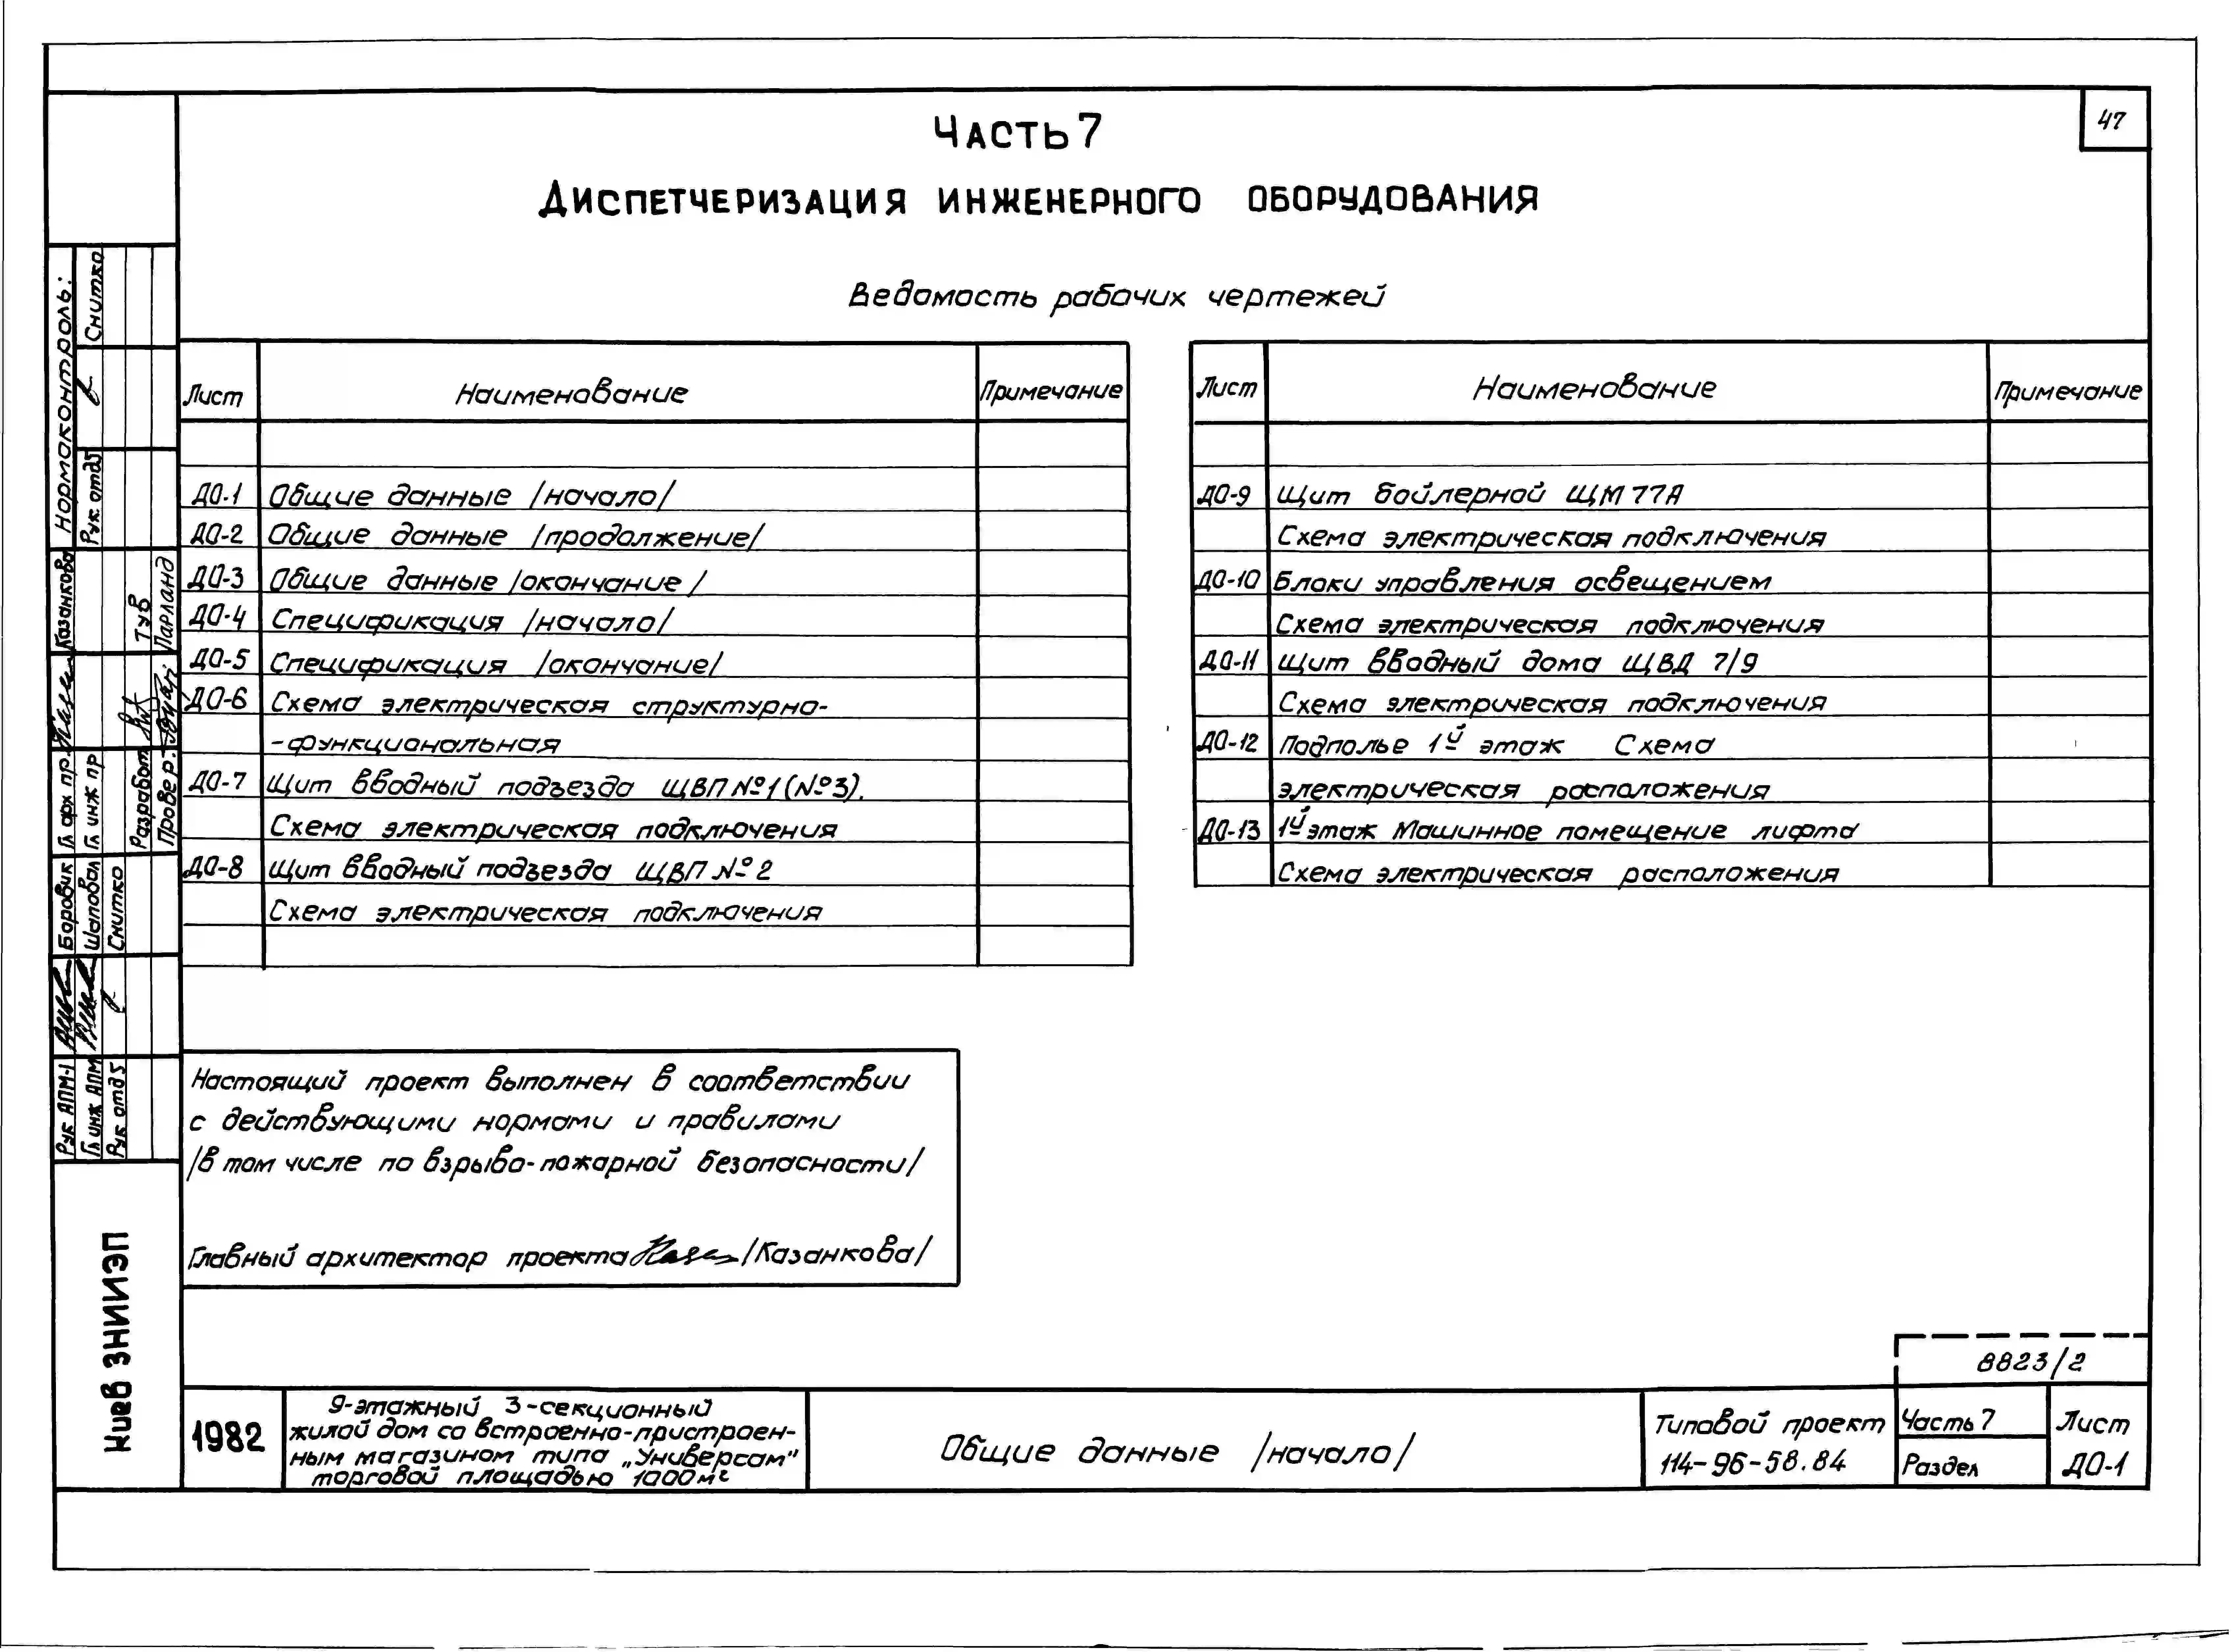 47
Часть 7
Диспетчеризация инженерного оборудования
Ведомость рабочих чертежей
Лист Наименование Примечание
ДО-1 Общие данные /начало/
ДО-2 Общие данные /продолжение/
ДО-3 Общие данные /окончание/
ДО-4 Спецификация /начало/
ДО-5 Спецификация /окончание/
ДО-6 Схема электрическая структурно-
-функциональная
ДО-7 Щит вводный подъезда ЩВП №1 (№3).
Схема электрическая подключения
ДО-8 Щит вводный подъезда ЩВП №2
Схема электрическая подключения
Лист Наименование Примечание
ДО-9 Щит бойлерной ЩМ 77А
Схема электрическая подключения
ДО-10 Блоки управления освещением
Схема электрическая подключения
ДО-11 Щит вводный дома ЩВД 7/9
Схема электрическая подключения
ДО-12 Подполье 1й этаж Схема
электрическая расположения
ДО-13 1й этаж Машинное помещение лифта
Схема электрическая расположения
Настоящий проект выполнен в соответствии
с действующими нормами и правилами
/в том числе по взрыво-пожарной безопасности/
Главный архитектор проекта /Казанкова/
Нормоконтроль:
Рук. отд5 Снитко
Гл арх пр. Казанкова
Гл инж пр
Разработ. Тув
Провер. Парланд
Рук АПМ-1 Боровик
Гл инж АПМ Шаповал
Рук отд5 Снитко
Киев ЗНИИЭП
1982
9-этажный 3-секционный
жилой дом со встроенно-пристроен-
ным магазином типа „Универсам"
торговой площадью 1000м²
Общие данные /начало/
Типовой проект
114-96-58.84
8823/2
Часть 7
Раздел
Лист
ДО-1